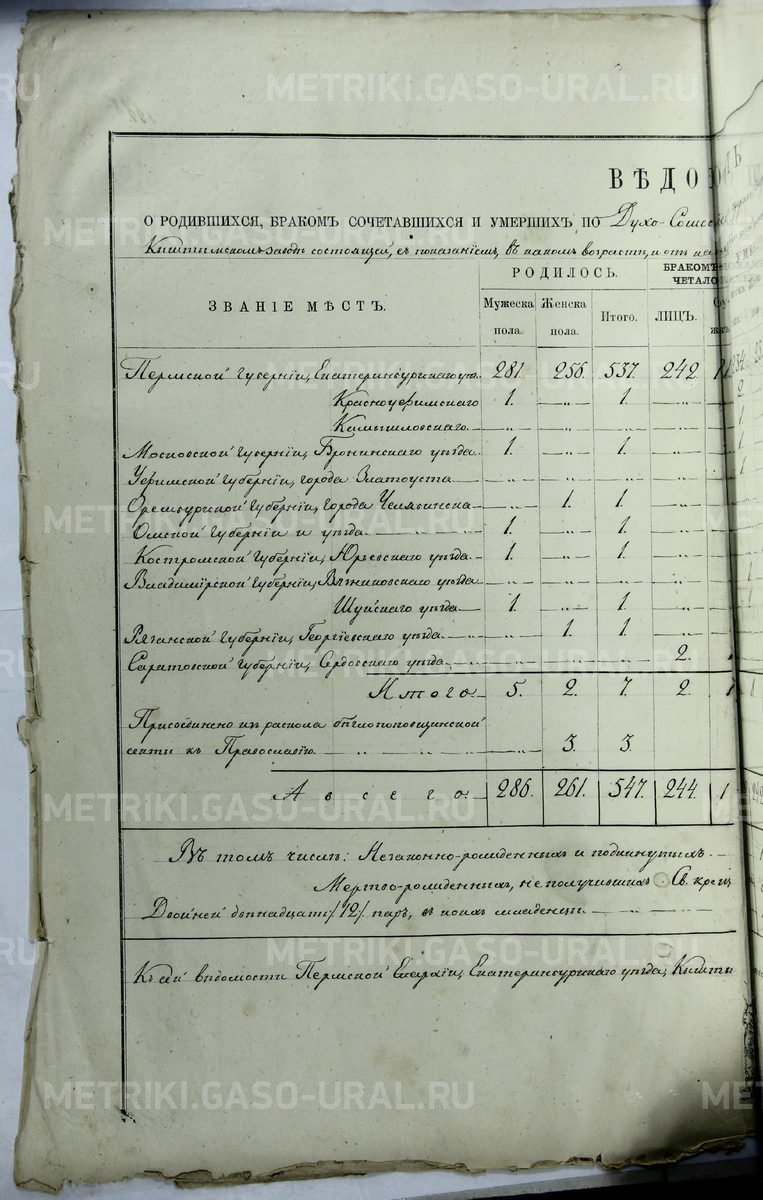 METRIKI.GASO-URAL.RU
ВѢДО
О РОДИВШИХСЯ, БРАКОМЪ СОЧЕТАВШИХСЯ И УМЕРШИХЪ, ПО Духо-Сошест
Кыштымскомъ заводѣ состоящей, съ показаніемъ, въ какомъ возрастѣ, и отъ
ЗВАНІЕ МѢСТЪ. РОДИЛОСЬ. БРАКОМЪ ЧЕТАЛО
Мужеска пола. Женска пола. Итого. ЛИЦЪ.
Пермской Губерніи, Екатеринбургскаго уѣ. 281. 256. 537. 242.
Красноуфимскаго 1. —„— 1. —„—
Камышловскаго. —„— —„— —„— —„—
Московской Губерніи, Бронинскаго уѣзда. 1. —„— 1. —„—
Уфимской Губерніи, города Златоуста —„— —„— —„— —„—
Оренбургской Губерніи, города Челябинска —„— 1. 1. —„—
Омской Губерніи и уѣзда 1. —„— 1. —„—
Костромской Губерніи, Юрьевскаго уѣзда. 1. —„— 1. —„—
Владимірской Губерніи, Вязниковскаго уѣзда —„— —„— —„— —„—
Шуйскаго уѣзда 1. —„— 1. —„—
Рязанской Губерніи, Георгіевскаго уѣзда. —„— 1. 1. —„—
Саратовской Губерніи, Сердовскаго уѣзда —„— —„— —„— 2.
Итого. 5. 2. 7. 2. 1
Присоединено изъ раскола бѣглопоповщинской
секты къ Православію. —„— 3. 3.
А всего. 286. 261. 547. 244. 1
Въ томъ числѣ: Незаконно-рожденныхъ и подкинутыхъ.
Мертво-рожденныхъ, не получившихъ Св. крещ
Двойней двѣнадцать /12/ паръ, въ коихъ младенцы.
Къ сей вѣдомости Пермской Епархіи, Екатеринбургскаго уѣзда, Кышты